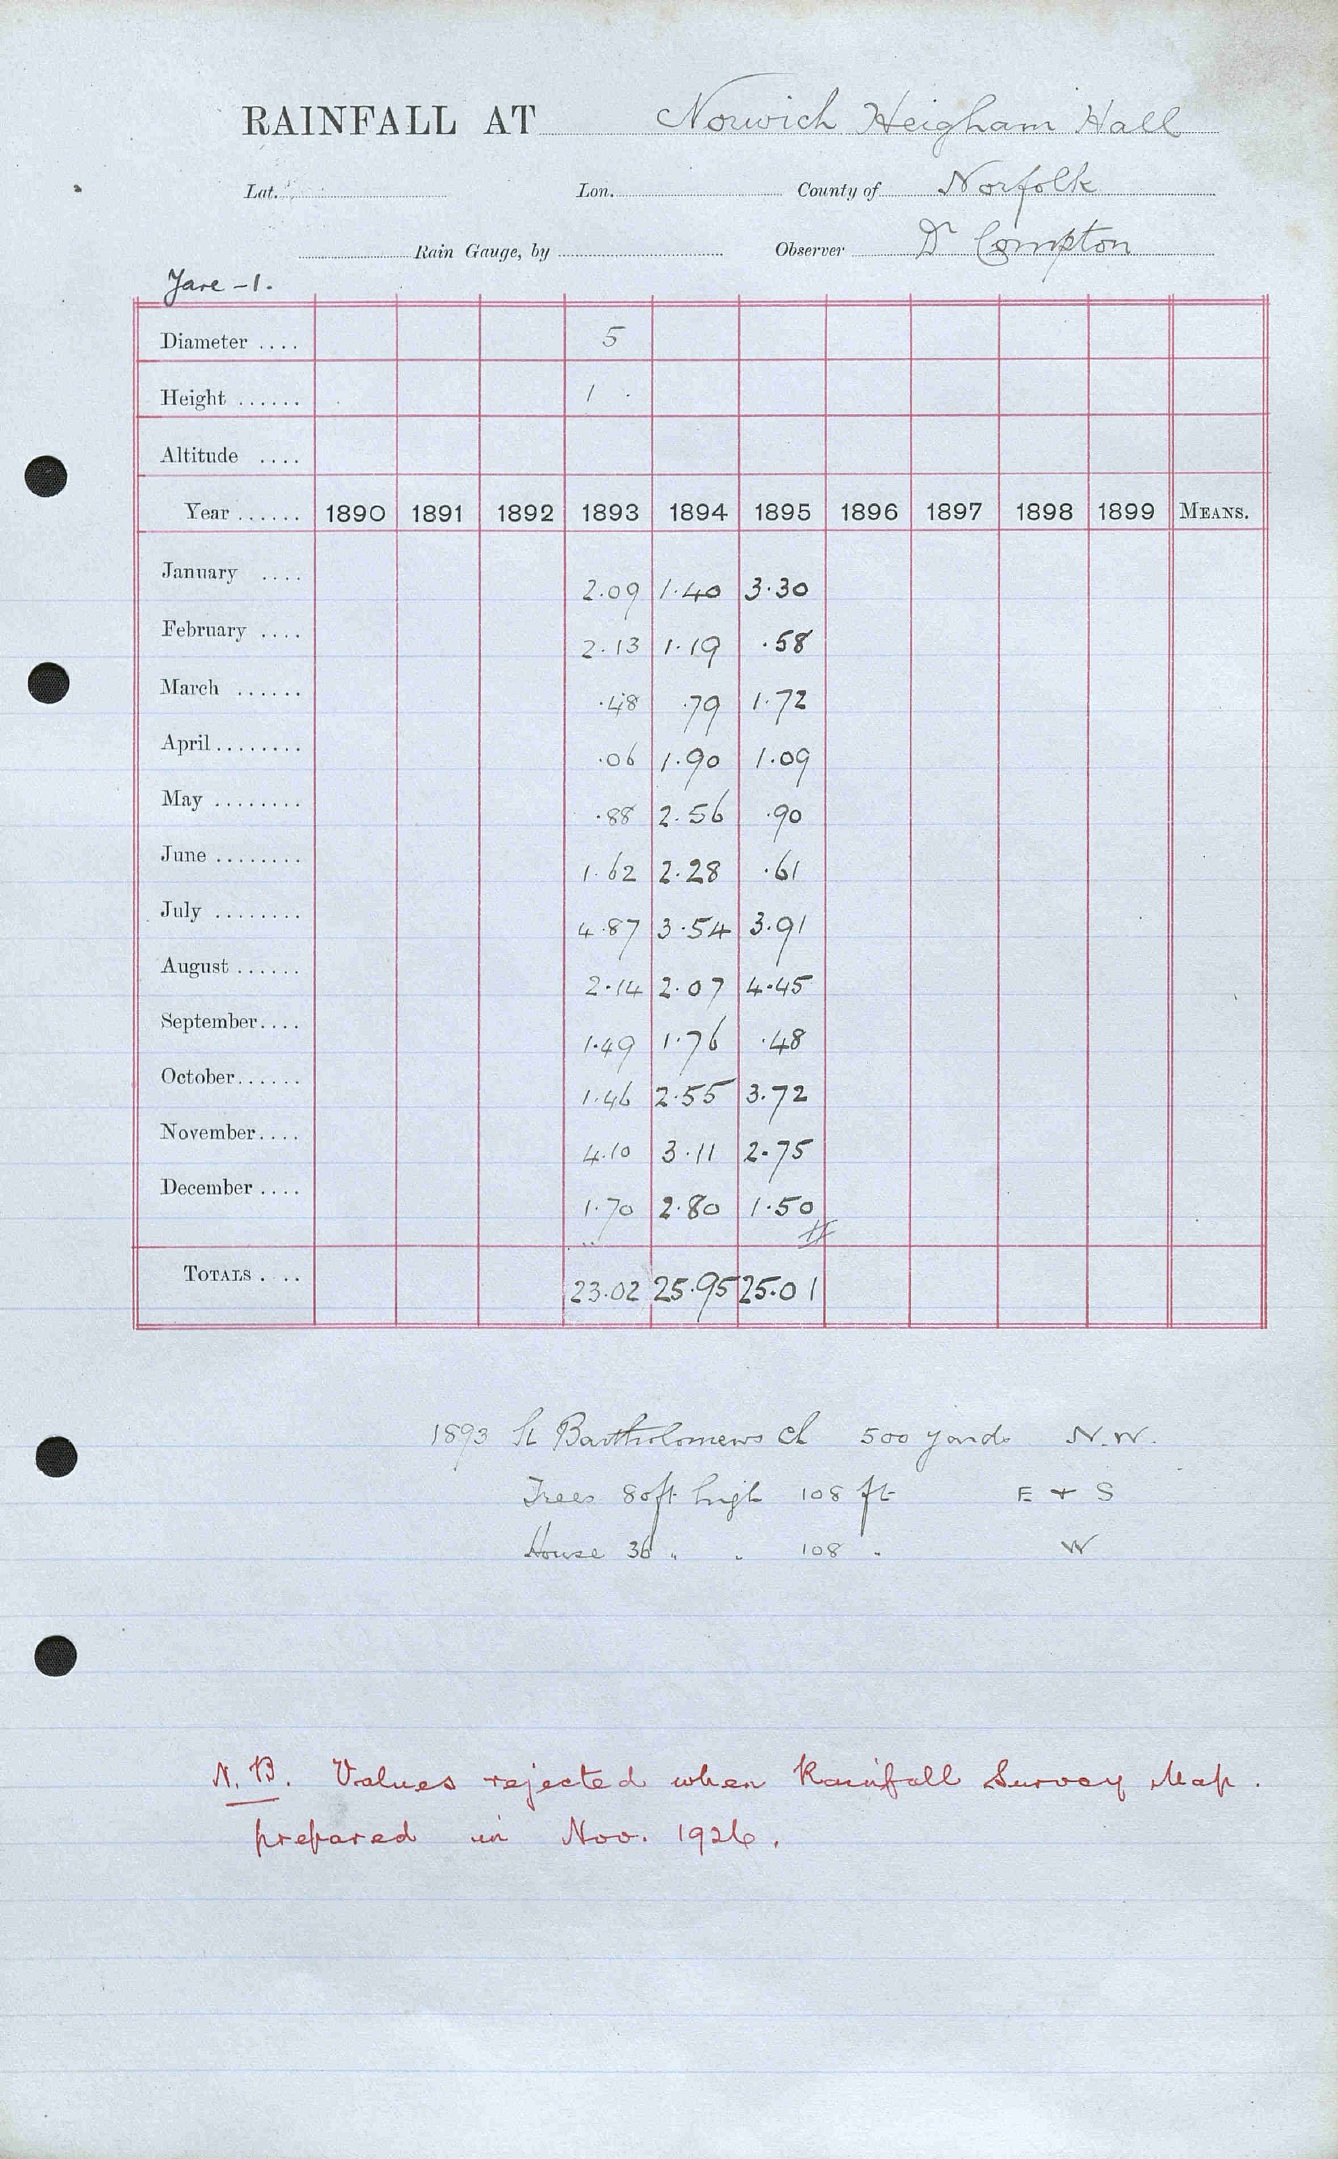 RAINFALL AT Norwich Heigham Hall
Lat. Lon. County of Norfolk
Rain Gauge, by Observer Dr Compton
Yare - 1.
Diameter .... 5
Height ...... 1
Altitude ....
Year ...... 1890 1891 1892 1893 1894 1895 1896 1897 1898 1899 MEANS.
January .... 2.09 1.40 3.30
February .... 2.13 1.19 .58
March ...... .48 .79 1.72
April ........ .06 1.90 1.09
May ........ .88 2.56 .90
June ........ 1.62 2.28 .61
July ........ 4.87 3.54 3.91
August ...... 2.14 2.07 4.45
September.... 1.49 1.76 .48
October...... 1.46 2.55 3.72
November.... 4.10 3.11 2.75
December .... 1.70 2.80 1.50
TOTALS .... 23.02 25.95 25.01
1893 St Bartholomews Ch 500 yards N.W.
Trees 80ft high 108 ft E + S
House 36 " " 108 " W
N.B. Values rejected when Rainfall Survey Map
prepared in Nov. 1926.